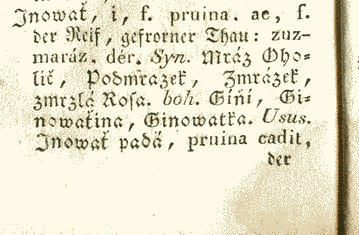 Jnowať, i, f. pruina. ae, f.
der Reif, gefrorner Thau: zuz=
maráz. dér. Syn. Mráz Oho=
lič, Podmrazek, Zmrázek,
zmrzlá Rosa. boh. Giňí, Gi=
nowaťina, Ginowatka. Usus.
Jnowať padá, pruina cadit,
der